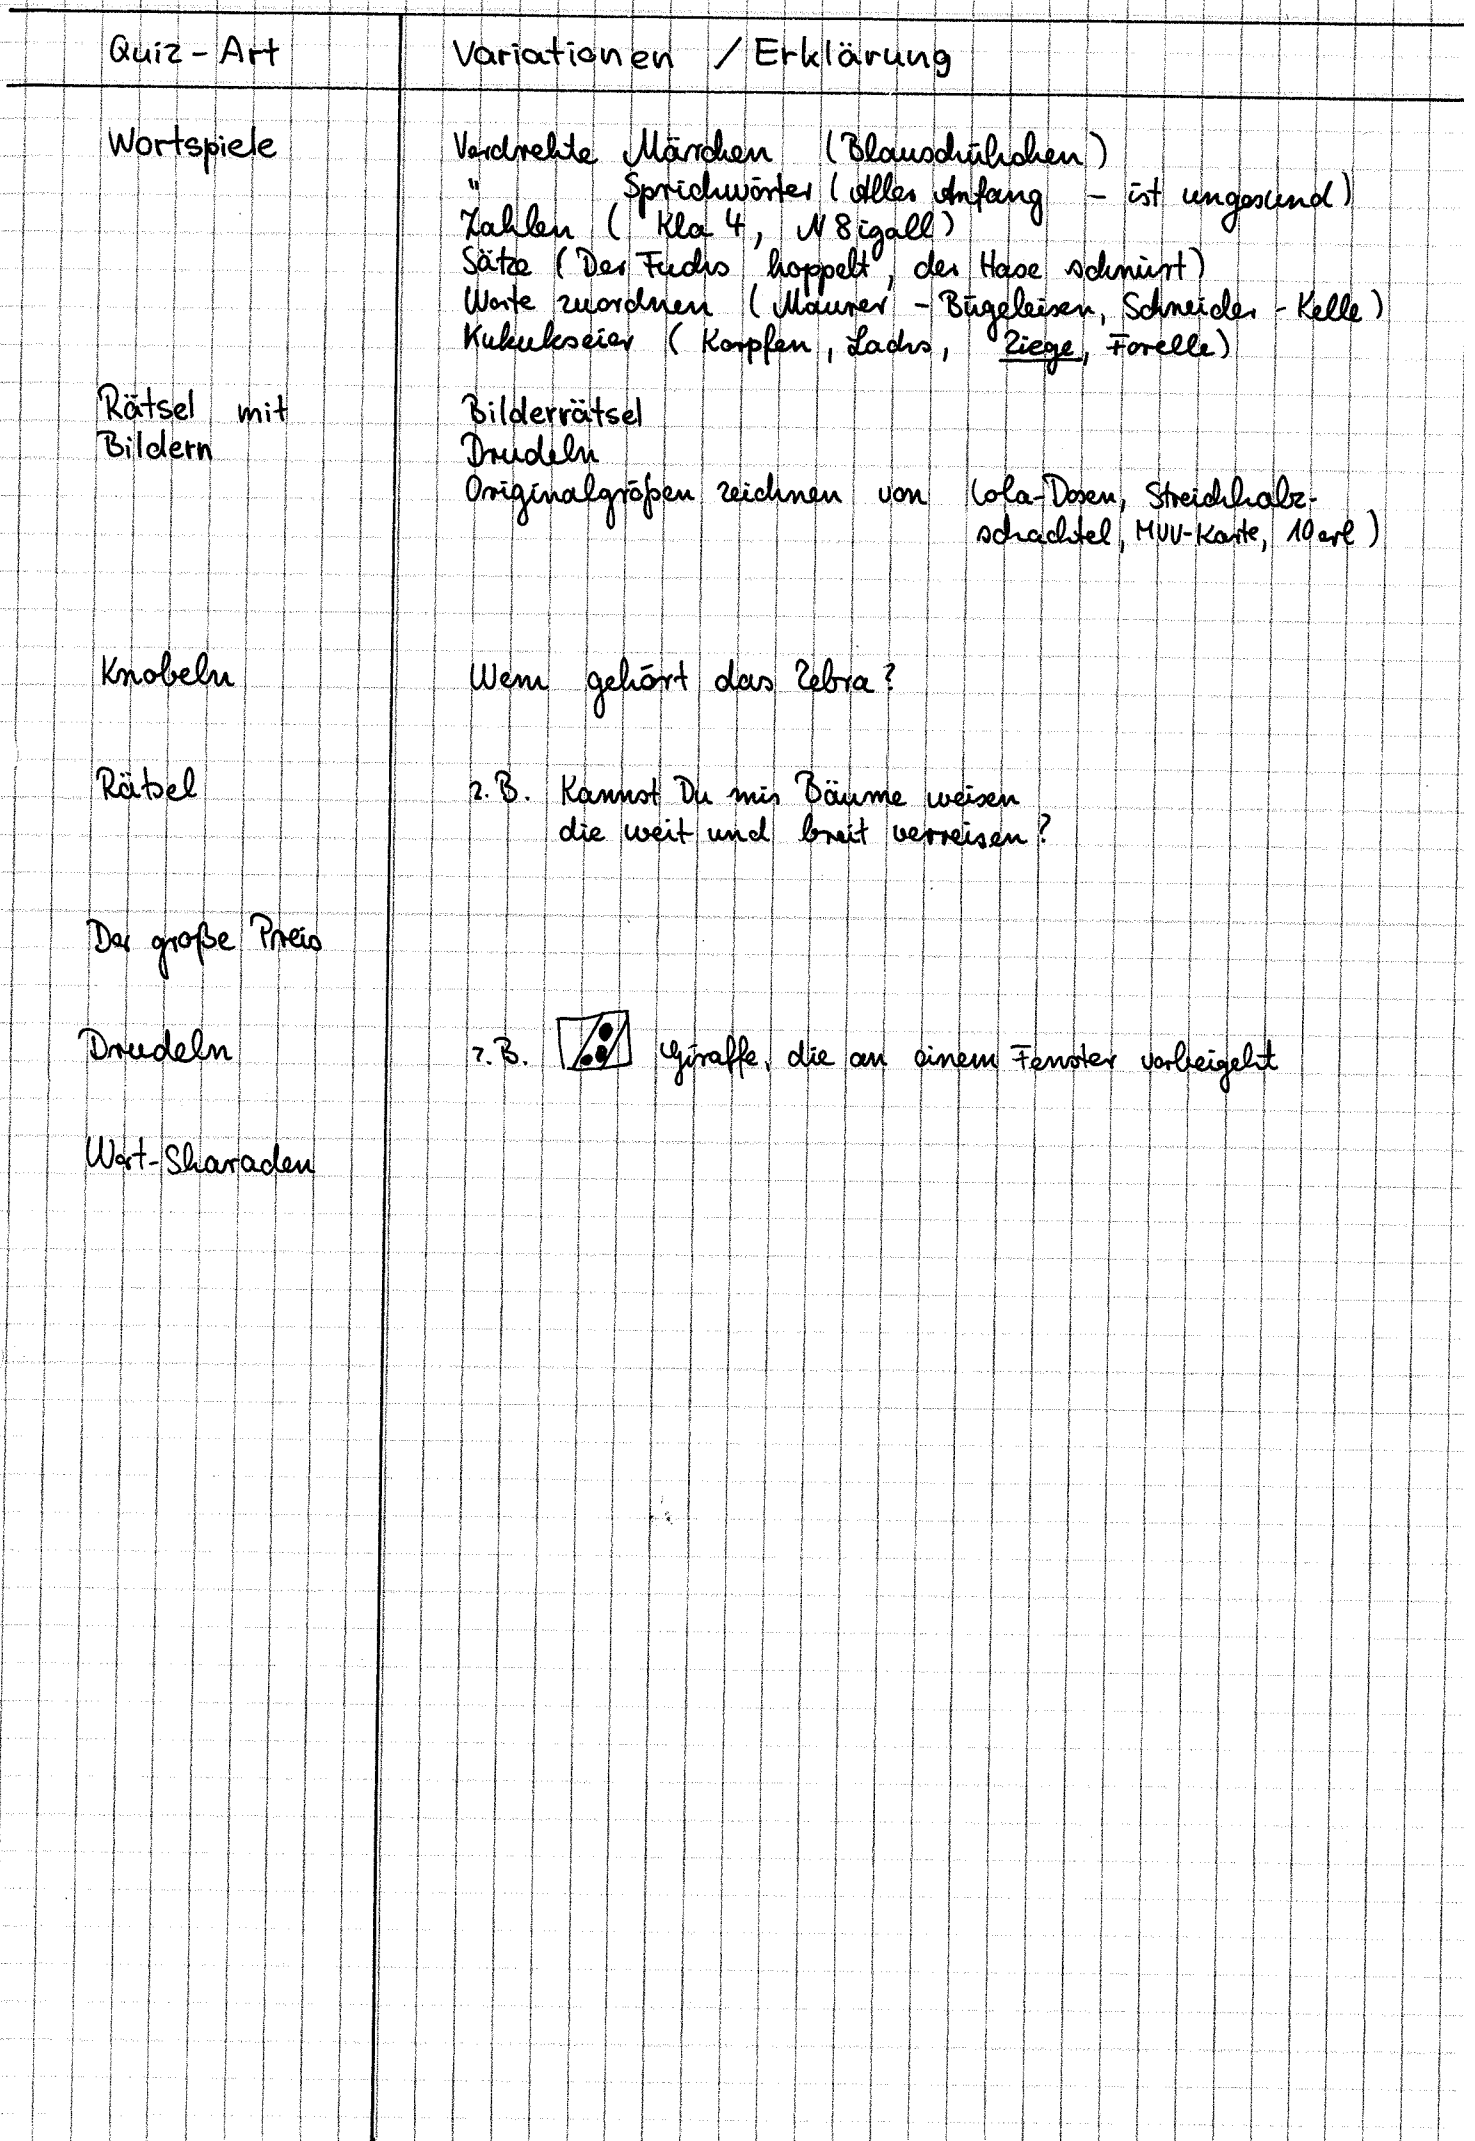 Quiz-Art Variationen / Erklärung
Wortspiele Verdrehte Märchen (Blauschühchen)
" Sprichwörter (Aller Anfang - ist ungesund)
Zahlen (Kla 4, N8igall)
Sätze (Der Fuchs hoppelt, der Hase schnürt)
Worte zuordnen (Maurer - Bügeleisen, Schneider - Kelle)
Kukukseier (Karpfen, Lachs, Ziege, Forelle)
Rätsel mit Bilderrätsel
Bildern Drudeln
Originalgrößen zeichnen von (Cola-Dosen, Streichholz-
schachtel, MVV-Karte, 10erl)
Knobeln Wem gehört das Zebra?
Rätsel z.B. Kannst Du mir Bäume weisen
die weit und breit verreisen?
Der große Preis
Drudeln z.B. Giraffe, die an einem Fenster vorbeigeht
Wort-Sharaden